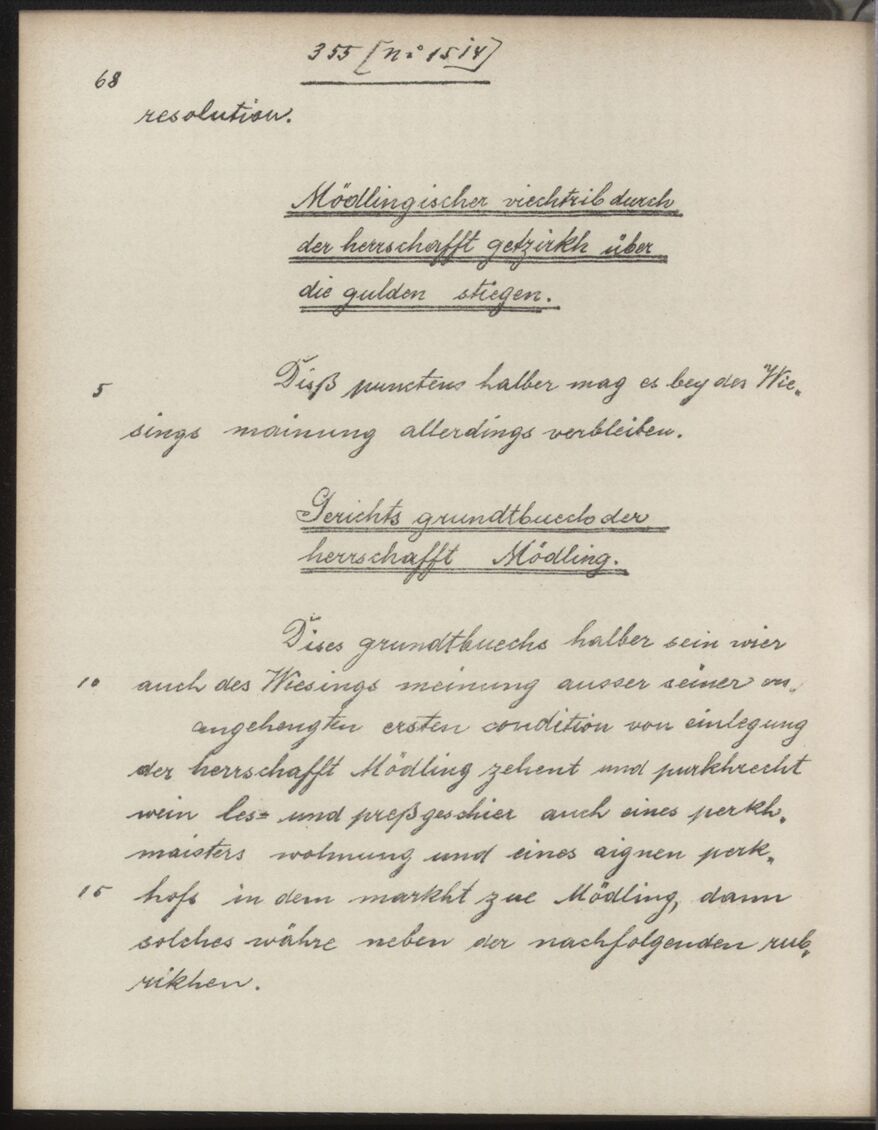 355 [No 1514]
68
resolution.
Mödlingischer viechtrib durch
der herrschafft getzirkh über
die gulden stiegen.
5 Disß punctens halber mag es bey des Wie„
sings mainung allerdings verbleiben.
Gerichts grundtbuech der
herrschafft Mödling.
Dises grundtbuechs halber sein wier
10 auch des Wiesings meinung ausser seiner an„
angehengten ersten condition von einlegung
der herrschafft Mödling zehent und purkhrecht
wein les= und preßgeschier auch eines perkh„
maisters wohnung und eines aignen perk„
15 hofs in dem markht zue Mödling, dann
solches währe neben der nachfolgenden rub„
rikhen.